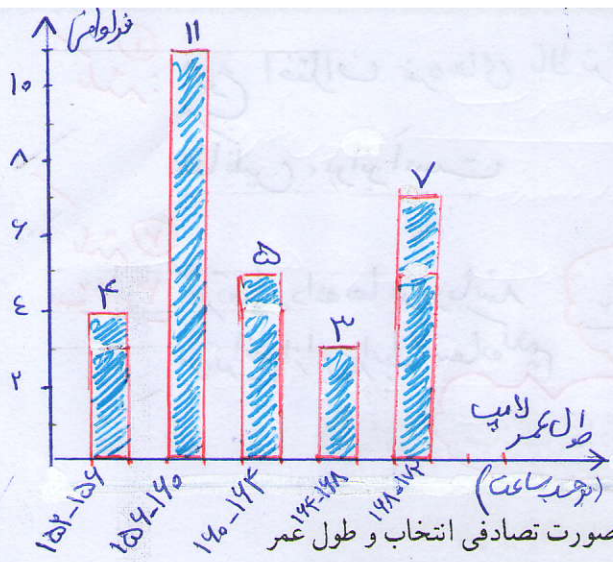 فراوانی
۱۱
۱۰
۸
۷
۶
۵
۴
۴
۳
۲
طول عمر لامپ
(برحسب ساعت)
۱۵۲-۱۵۶
۱۵۶-۱۶۰
۱۶۰-۱۶۴
۱۶۴-۱۶۸
۱۶۸-۱۷۲
صورت تصادفی انتخاب و طول عمر